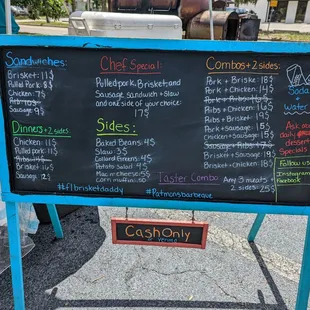 Sandwiches:
Brisket: 11$
Pulled Pork: 8$
Chicken: 7$
Ribs: 10$
Sausage: 9$
Dinners + 2 sides:
Chicken 11$
Pulled Pork 13$
Ribs 17$
Brisket 16$
Sausage 14$
Chef Special:
Pulled pork, Brisket, and
Sausage sandwich + slaw
and one side of your choice
17$
Sides:
Baked Beans 4$
Slaw 3$
Collard Greens 4$
Potato Salad 4$
Mac n cheese 5$
Corn muffin
Combos + 2 sides:
Pork + Brisket 18$
Pork + Chicken 14$
Pork + Ribs
Ribs + Brisket 19$
Pork + Sausage 15$
Chicken + Sausage
Ribs + Sausage
Ribs + Chicken
Brisket + Sausage
Brisket + Chicken
Taster Combo
Any 3 meats +
2 sides 25$
Soda
Water
Ask about
daily
dessert
specials
Follow us
Instagram
Facebook
#flbrisketdaddy
#Patmonsbarbque
Cash Only
or Venmo